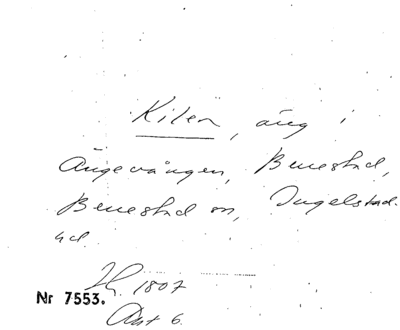 Kilen, äng i
Ängavången, Benestad,
Benestad sn, Ingelstad
hd.
1807
Nr 7553.
Akt 6.